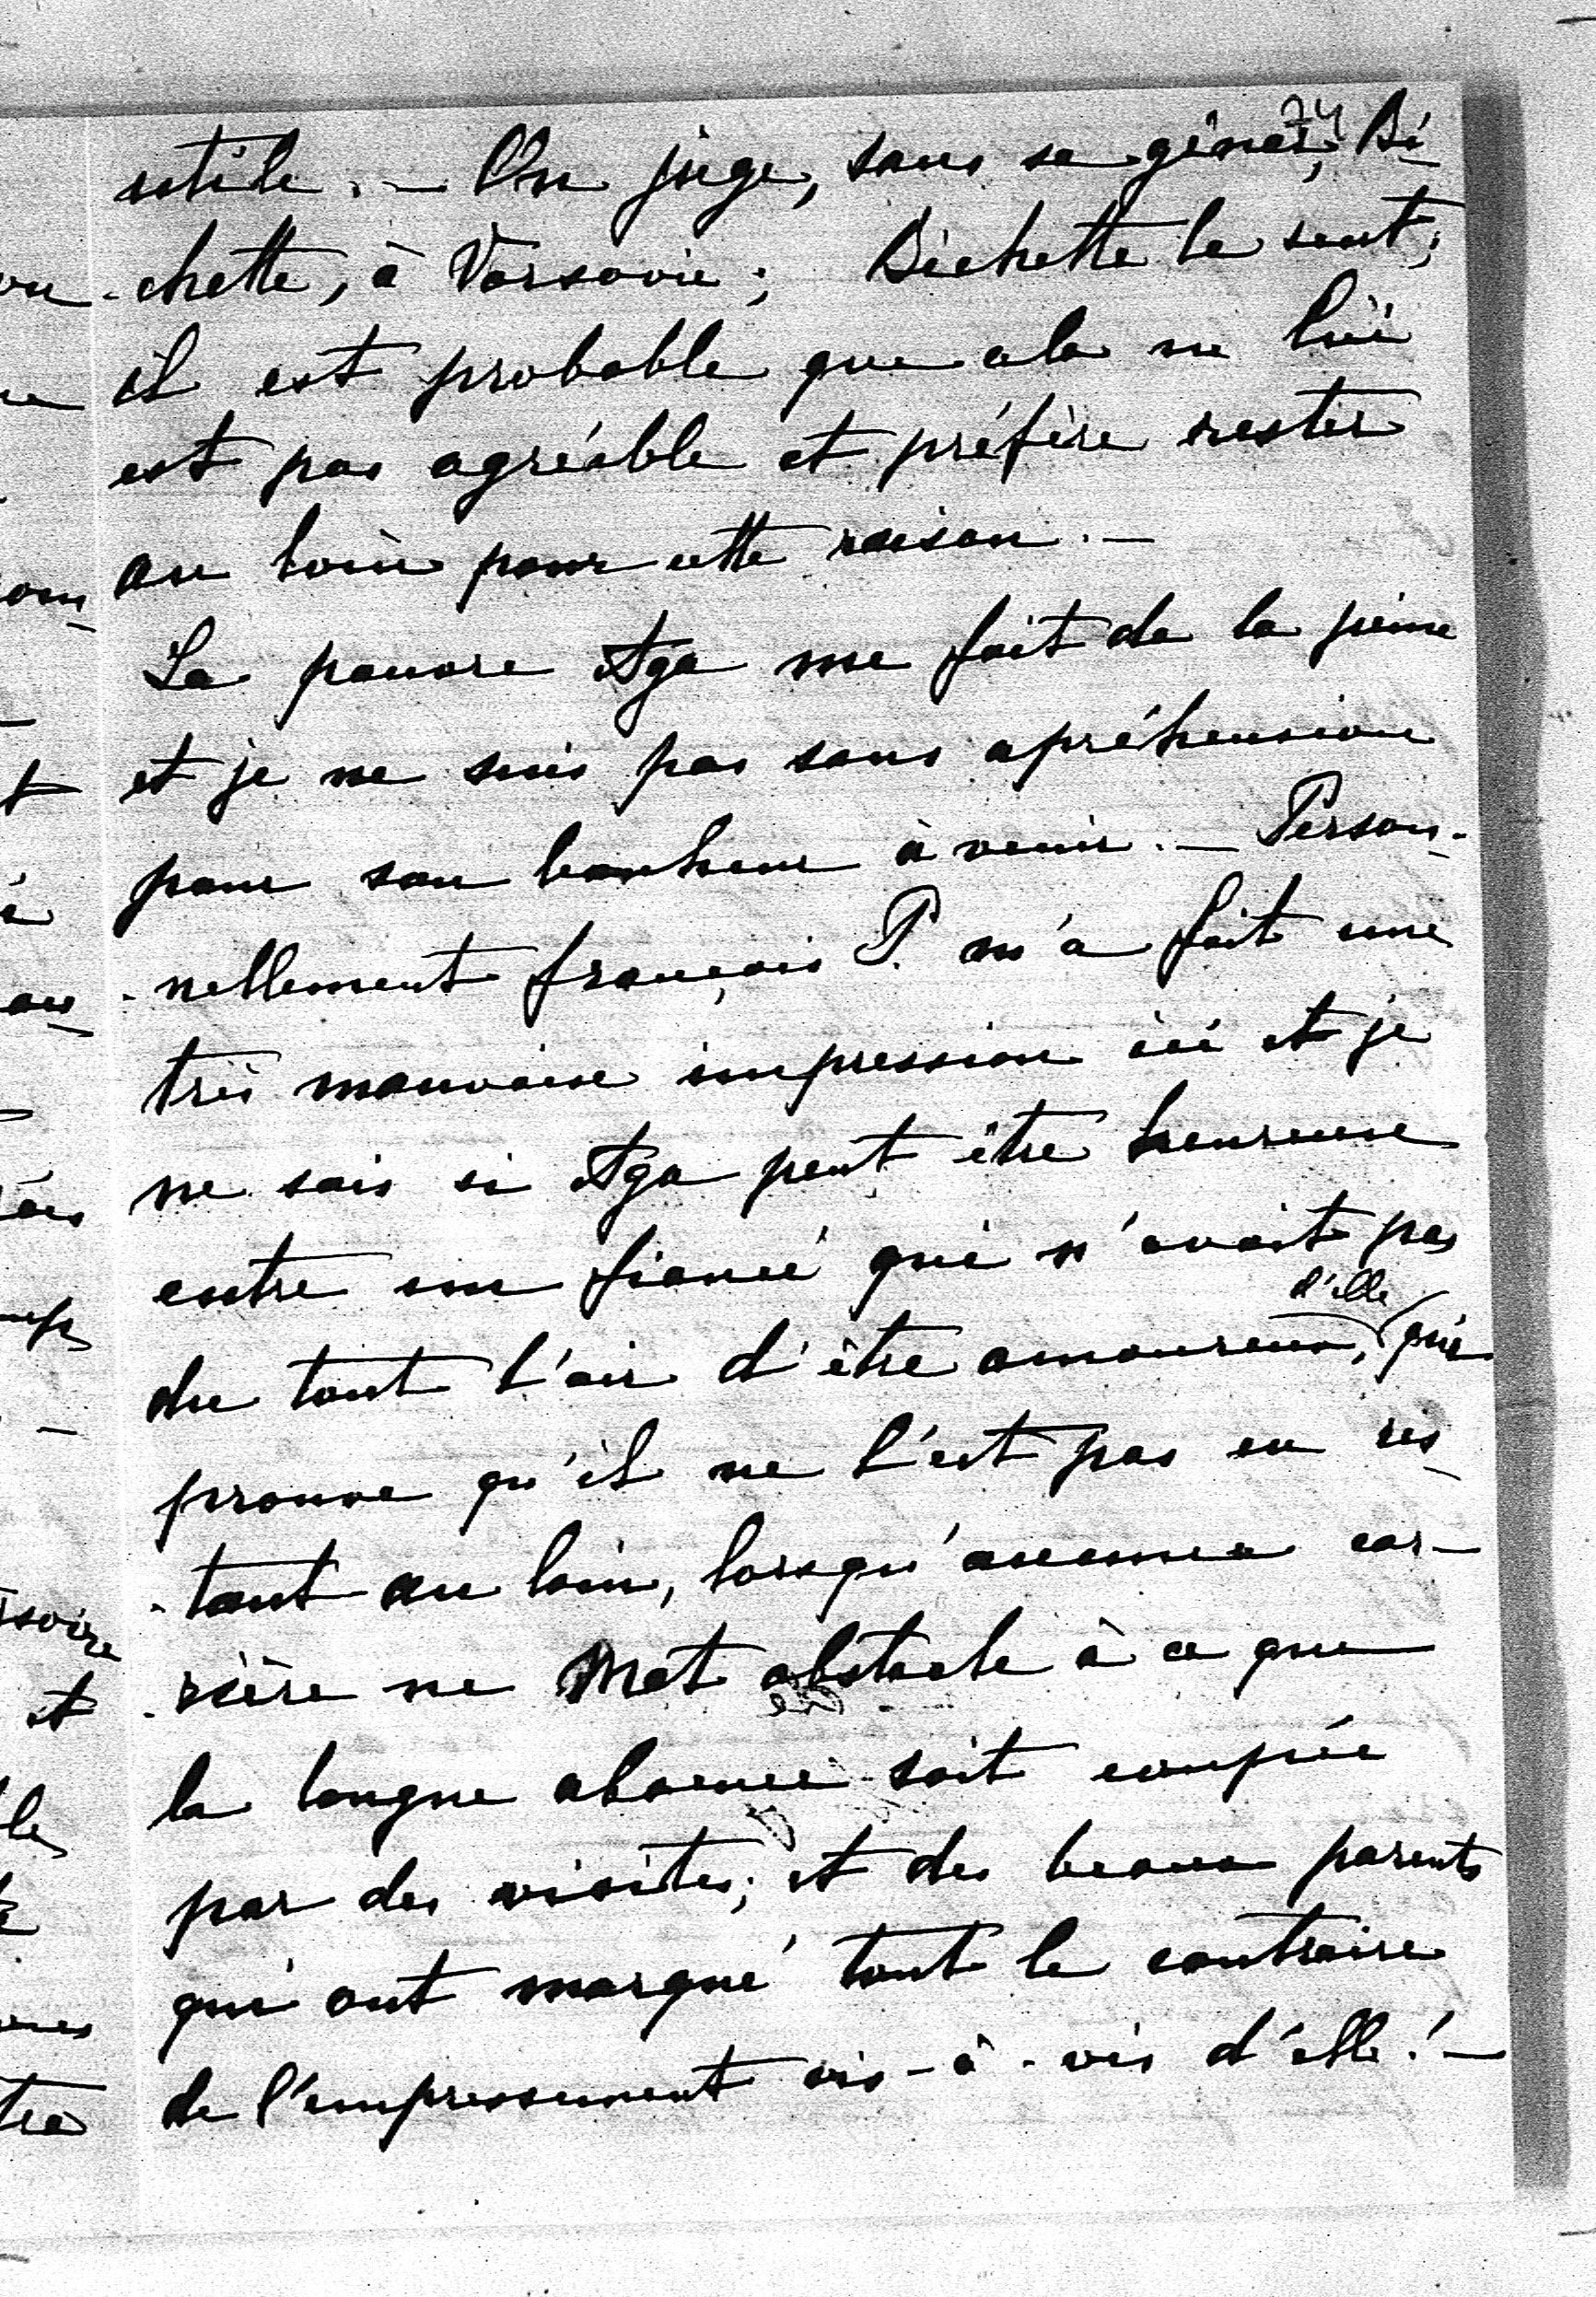 74
utile. — On juge, sans se gêner, Bi-
-chette, à Varsovie; Bichette le sent;
il est probable que cela ne lui
est pas agréable et préfère rester
au loin pour cette raison. —
La pauvre Aga me fait de la peine
et je ne suis pas sans apréhension
pour son bonheur à venir. — Person-
-nellement françois P. m'a fait une
très mauvaise impression ici et je
ne sais si Aga peut être heureuse
entre un fiancé qui n'avait pas
du tout l'air d'être amoureux d'elle, qui
prouve qu'il ne l'est pas en res-
-tant au loin, lorsqu'aucune car-
-rière ne met obstacle à ce que
la longue absence soit coupée
par des visites; et des beaux parents
qui ont marqué tout le contraire
de l'empressement vis-à-vis d'elle! —